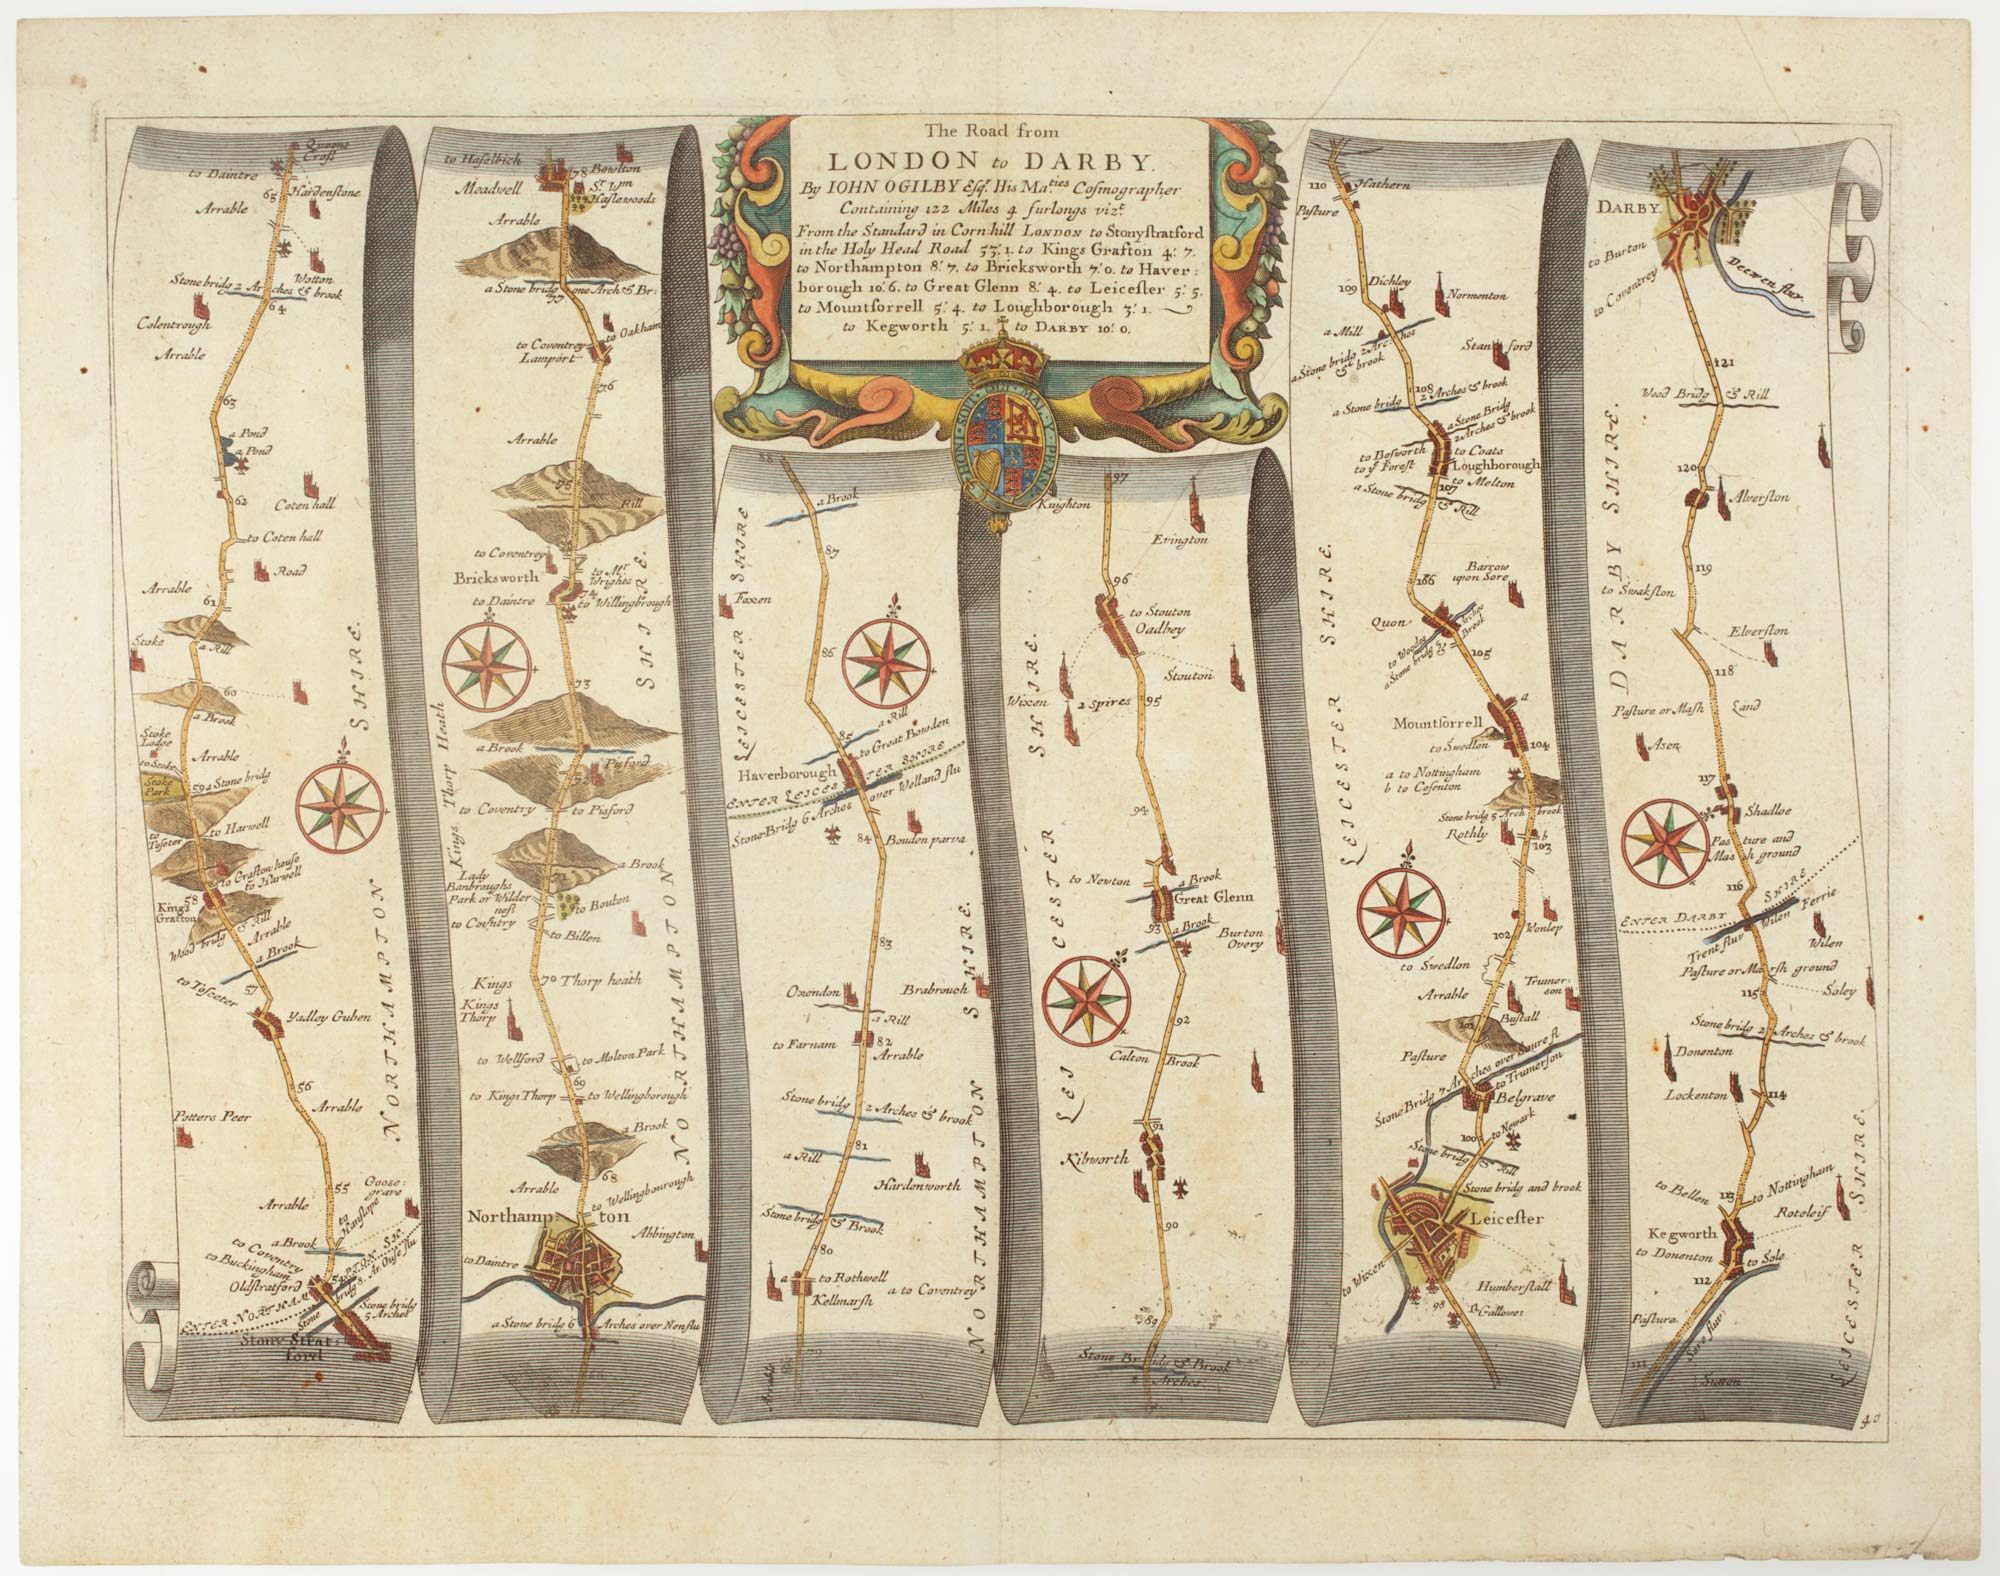 The Road from
LONDON to DARBY.
By IOHN OGILBY Esqr. His Maties Cosmographer
Containing 122 Miles 4 furlongs vizt.
From the Standard in Cornhill LONDON to Stonystratford
in the Holy Head Road 53'.1. to Kings Grafton 4'.7.
to Northampton 8'.7. to Bricksworth 7'.0. to Haver:
borough 10'.6. to Great Glenn 8'.4. to Leicester 5'.5.
to Mountsorrell 5'.4. to Loughborough 3'.1.
to Kegworth 5'.1. to DARBY 10'.0.
HONI·SOIT·QUI·MAL·Y·PENSE
Queens
Cross
to Daintre
65
Hardenstone
Arrable
Wotton
Stone bridg 2 Arches & brook
64
Colentrough
Arrable
63
a Pond
a Pond
62
Coten hall
to Coten hall
Road
Arrable
61
Stoke
a Rill
60
a Brook
Stoke
Lodge
Arrable
to Stoke
Stoke
Park
59 a Stone bridg
to
Toseter
to Harwell
to Grafton house
to Harwell
58
Kings
Grafton
Wood bridg & Rill
Arrable
a Brook
57
to Toseter
Yadley Guben
56
Arrable
Potters Peer
55
Arrable
Goose:
grave
to
Hanslape
a Brook
to Coventry
to Buckingham
Oldstratford
54
ENTER NORTHAMPTON SH.
Stone bridg 8. Ar. Ouse flu
Stone bridg
5 Arches
Stony Strat:
ford
NORTHAMPTON SHIRE.
to Haselbich
78
Bowlton
Meadwell
Sr. Wm
Haslewoods
Arrable
a Stone bridg one Arch & Br:
77
to Oakham
to Coventrey
Lamport
76
Arrable
75
Rill
to Coventrey
to Mr.
Wrights
Bricksworth
74
to Daintre
to Willingbrough
73
a Brook
Pisford
72
to Coventry
to Pisford
a Brook
71
Lady
Banbroughs
Park or Wilder
ness
to Bouton
to Coventry
to Billen
Kings
70 Thorp heath
Kings
Thorp
to Wellford
to Molton Park
69
to Kings Thorp
to Wellingborough
a Brook
68
Arrable
to Wellingbourough
Northamp:ton
Abbington
to Daintre
a Stone bridg 6 Arches over Nenflu
Kings Thorp Heath
NORTHAMPTON SHIRE.
88
a Brook
87
Foxen
86
a Rill
85
to Great Bowden
Haverborough
ENTER LEICESTER SHIRE
Stone Bridg 6 Arches over Welland flu
84
Bouden parva
83
Oxendon
Brabrouch
a Rill
to Farnam
82
Arrable
Stone bridg 2 Arches & brook
81
a Rill
Hardenworth
Stone bridg & Brook
80
a
to Rothwell
a to Coventrey
Kellmarsh
79
Arrable
LEICESTER SHIRE
NORTHAMPTON SHIRE.
97
Knighton
Evington
96
to Stouton
Oadbey
Stouton
Wixen
2 spires
95
94
to Newton
a Brook
Great Glenn
93
a Brook
Burton
Overy
92
Calton Brook
91
Kibworth
90
89
Stone Bridg & Brook
2 Arches
LEICESTER SHIRE.
110
Hathern
Pasture
Dichley
109
Normenton
a Mill
a Stone bridg 2 Arches
& brook
Stanford
108
a Stone bridg 2 Arches & brook
a Stone Bridg
2 Arches & brook
to Bosworth
to ye Forest
to Coats
Loughborough
to Melton
107
a Stone bridg & Rill
106
Barrow
upon Sore
Quon
to Woodes
a Stone bridg 2 Arches
& Brook
105
a
Mountsorrell
to Swedlon
104
a to Nottingham
b to Cosenton
Stone bridg 5 Arch brook
Rothly
b
103
102
Wonlep
to Swedlon
Arrable
Trumer:
son
101
Bustall
Pasture
Stone Bridg 7 Arches over Soure fl
to Trumerson
Belgrave
100
to Newark
Stone bridg & Rill
Stone bridg and brook
Leicester
to Wixen
Humberstall
98
Ye Gallowes
LEICESTER SHIRE.
DARBY.
to Burton
to Coventrey
Deerwen flur
121
Wood Bridg & Rill
120
Alverston
119
to Swakston
Elverston
118
Pasture or Mash Land
Asen
117
Shadloe
Pasture and
Mash ground
116
ENTER DARBY SHIRE
Trent fluv Wilen Ferrie
Wilen
Pasture or Marsh ground
115
Soley
Stone bridg 2 Arches & brook
Donenton
Lockenton
114
to Bellen
113
to Nottingham
Roteleif
Kegworth
to Donenton
to Sole
112
Pasture
Sore fluv:
111
Sutton
DARBY SHIRE.
LEICESTER SHIRE.
40